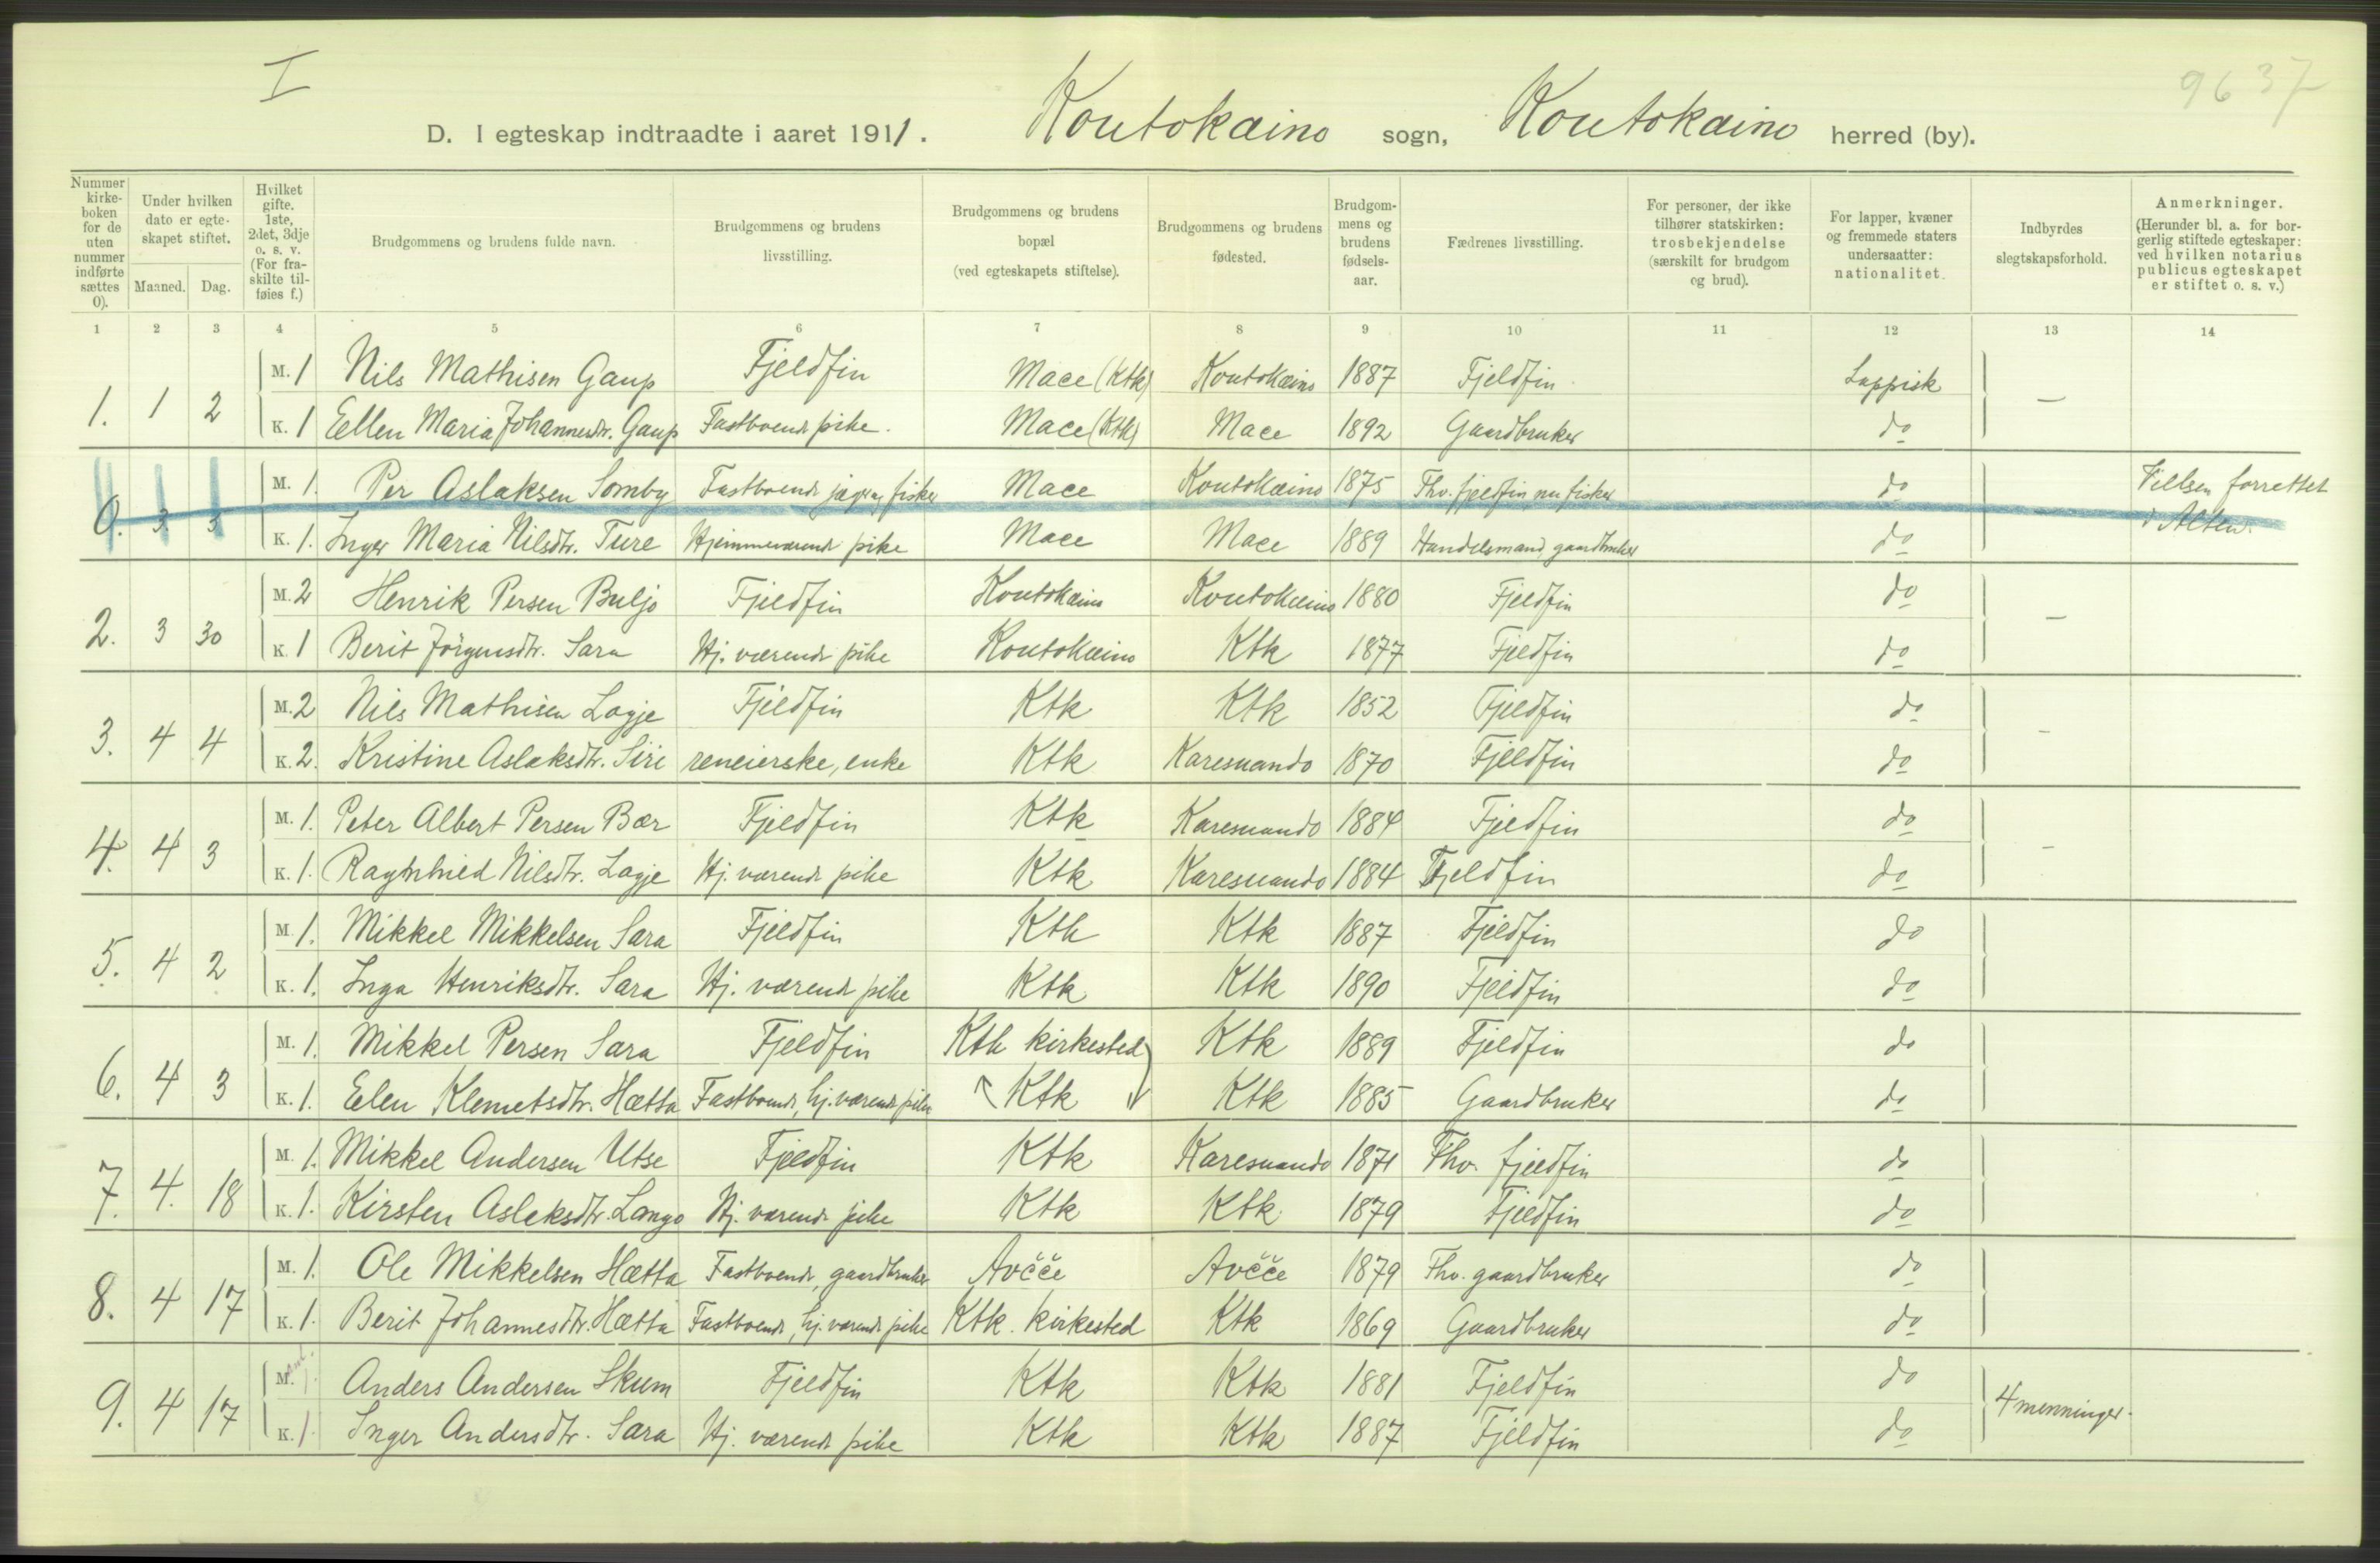 I
9637
D. I egteskap indtraadte i aaret 1911. Koutokæino sogn, Koutokæino herred (by).
Nummer kirke-boken for de uten nummer indførte sættes 0). Under hvilken dato er egte-skapet stiftet. Maaned. Dag. Hvilket gifte. 1ste, 2det, 3dje o. s. v. (For fra-skilte til-føies f.) Brudgommens og brudens fulde navn. Brudgommens og brudens livsstilling. Brudgommens og brudens bopæl (ved egteskapets stiftelse). Brudgommens og brudens fødested. Brudgom-mens og brudens fødsels-aar. Fædrenes livsstilling. For personer, der ikke tilhører statskirken: trosbekjendelse (særskilt for brudgom og brud). For lapper, kvæner og fremmede staters undersaatter: nationalitet. Indbyrdes slegtskapsforhold. Anmerkninger. (Herunder bl. a. for bor-gerlig stiftede egteskaper: ved hvilken notarius publicus egteskapet er stiftet o. s. v.)
1 2 3 4 5 6 7 8 9 10 11 12 13 14
M. 1 Nils Mathisen Gaup Fjeldfin Mace (Ktk) Koutokæino 1887 Fjeldfin Lappisk
1. 1 2 —
K. 1 Ellen Maria Johannesdtr. Gaup Fastboende pike. Mace (Ktk) Mace 1892 Gaardbruker do
M. 1. Per Aslaksen Somby Fastboende jæger, fisker Mace Koutokæino 1875 Fhv. fjeldfin, nu fisker do Vielsen forrettet
0. 3. 3 —
K. 1. Inger Maria Nilsdtr. Ture Hjemmeværende pike Mace Mace 1889 Handelsmand, gaardbruker do i Alten.
M. 2 Henrik Persen Buljo Fjeldfin Koutokæino Koutokæino 1880 Fjeldfin do
2. 3 30 —
K. 1 Berit Jörgensdtr. Sara Hj. værende pike Koutokæino Ktk 1877 Fjeldfin do
M. 2 Nils Mathisen Logje Fjeldfin Ktk Ktk 1852 Fjeldfin do
3. 4 4 —
K. 2. Kristine Aslaksdtr. Siri reneierske, enke Ktk Karesuando 1870 Fjeldfin do
M. 1. Peter Albert Persen Bær Fjeldfin Ktk Karesuando 1884 Fjeldfin do
4. 4 3 —
K. 1. Nilsdtr. Logje Hj. værende pike Ktk Karesuando 1884 Fjeldfin do
M. 1. Mikkel Mikkelsen Sara Fjeldfin Ktk Ktk 1887 Fjeldfin do
5. 4 2
K. 1. Inga Henriksdtr. Sara Hj. værende pike Ktk Ktk 1890 Fjeldfin do
M. 1. Mikkel Persen Sara Fjeldfin Ktk kirkested Ktk 1889 Fjeldfin do
6. 4 3
K. 1. Elen Klemetsdtr. Hætta Fastboende, hj. værende pike Ktk Ktk 1885 Gaardbruker do
M. 1. Mikkel Andersen Utse Fjeldfin Ktk Karesuando 1871 Fhv. fjeldfin do
7. 4. 18
K. 1. Kirsten Aslaksdtr. Lango Hj. værende pike Ktk Ktk 1879 Fjeldfin do
M. 1. Ole Mikkelsen Hætta Fastboende, gaardbruker Avčče Avčče 1879 Fhv. gaardbruker do
8. 4 17
K. 1. Berit Johannesdtr. Hætta Fastboende, hj. værende pike Ktk. kirkested Ktk 1869 Gaardbruker do
M. Anders Andersen Skum Fjeldfin Ktk Ktk 1881 Fjeldfin do
9. 4 17 4 menninger.
K. 1. Inger Andersdtr. Sara Hj. værende pike Ktk Ktk 1887 Fjeldfin do